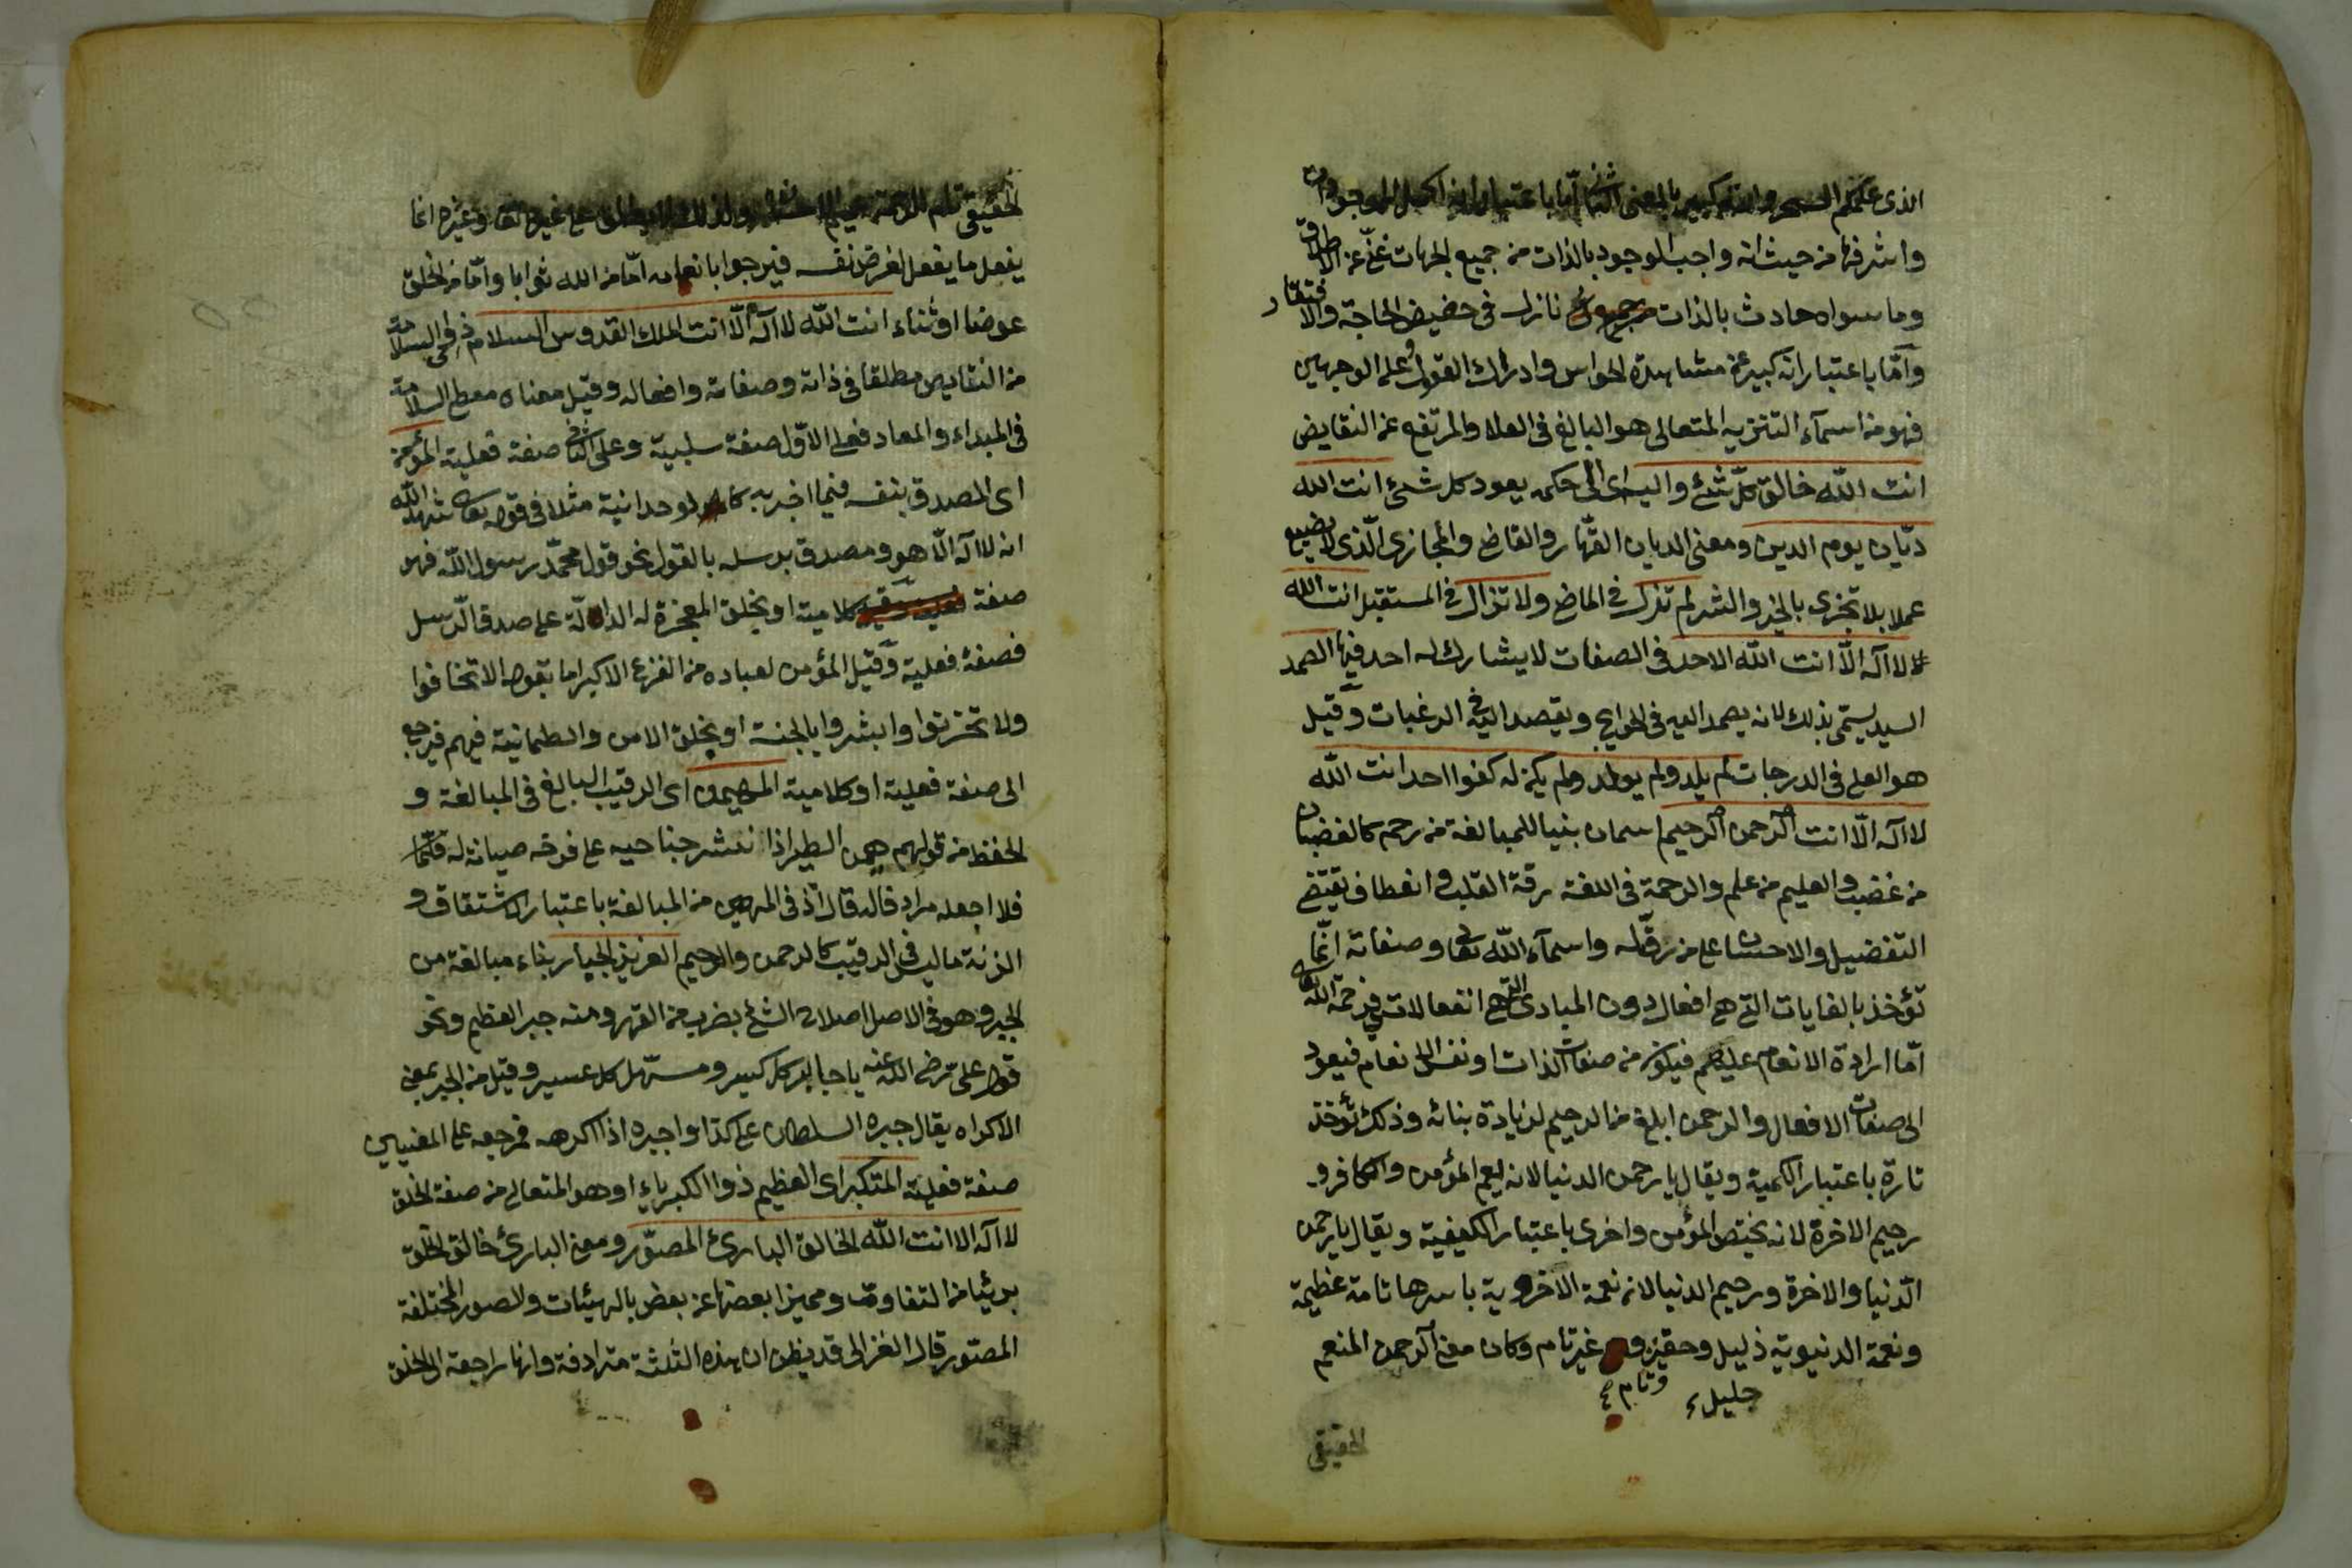 الذى علمكم السحر والله كبير بالمعنى الثانى اما باعتبار انه اكمل الموجودات
واشرفها من حيث انه واجب الوجود بالذات من جميع الجهات غنى عن الاطلاق
وما سواه حادث بالذات نازل فى حضيض الحاجة والافتقار
وامّا باعتبار انه كبير عن مشاهدة الحواس وادراك العقول وعلى الوجهين
فهو من اسمآء التنزيه المتعالى هو البالغ فى العلا والمرتفع عن النقايض
انت الله خالق كلّ شئ واليه اى الى حكمه يعود كل شئ انت الله
ديّان يوم الدين ومعنى الديان القهّار والقاضى والمجازى الّذى لا يضيع
عملا بلا تجزى بالخير والشر لم تزل فى الماضى ولا تزال فى المستقبل انت الله
لا اله الّا انت الله الاحد فى الصفات لا يشارك له احد فيها الصمد
السيد يسمّى بذلك لانه يصمد اليه فى الحوايج ويقصد اليه فى الرغبات وقيل
هو العلى فى الدرجات لم يلد ولم يولد ولم يكن له كفوا احد انت الله
لا اله الّا انت الرحمن الرحيم اسمان بنيا للمبالغة من رحم كالغضبان
من غضب والعليم من علم والرحمة فى اللغة رقة القلب وانعطاف يقتضى
التفضيل والاحسان على من رقّ له واسمآء الله تعالى وصفاته انّما
تؤخذ بالغايات التى هى افعال دون المبادى التى هى انفعالات فرحمة الله تعالى
امّا ارادة الانعام عليهم فيكون من صفات الذات او نفس الانعام فيعود
الى صفات الافعال والرحمن ابلغ من الرحيم لزيادة بنائه وذلك تؤخذ
تارة باعتبار الكمية ويقال يا رحمن الدنيا لانه يعم المؤمن والكافر و
رحيم الاخرة لانه يختص المؤمن واخرى باعتبار الكيفية ويقال يا رحمن
الدّنيا والاخرة ورحيم الدنيا لان نعمة الاخروية باسرها تامة عظيمة
ونعمة الدنيوية ذليل وحقير و غير تام وكان معنى الرحمن المنعم
جليل وتام
الحقيقى
الحقيقى تام الرحمة عميم الاحسان ولذلك لا يطلق على غيره تعالى وغيره انما
يفعل ما يفعل لغرض نفسه فيرجوا بانعامه امّا من الله ثوابا وامّا من الخلق
عوضا او ثناء انت الله لا اله الّا انت الملك القدوس السلام ذو السلامة
من النقايص مطلقا فى ذاته وصفاته وافعاله وقيل معناه معطى السلامة
فى المبداء والمعاد فعلى الاوّل صفة سلبية وعلى الثانى صفة فعلية المؤمن
اى المصدق بنفسه فيما اخبر به لوحدانية مثلا فى قوله تعالى شهد الله
انه لا اله الّا هو ومصدق برسله بالقول نحو قول محمّد رسول الله فهو
صفة كلامية او بخلق المعجزة له الدالّة على صدق الرسل
فصفة فعلية وقيل المؤمن لعباده من الفزع الاكبر اما بقوله الا تخافوا
ولا تحزنوا وابشروا بالجنة او بخلق الامن والطمانية فيهم فيرجع
الى صفة فعلية او كلامية المهيمن اى الرقيب البالغ فى المبالغة و
الحفظ من قولهم هيمن الطير اذا نشر جناحيه على فرخه صيانة له
فلا اجعله مرادفا له قال اذ فى المهيمن من المبالغة باعتبار الاشتقاق و
الزنة ما ليس فى الرقيب كالرحمن والرحيم العزيز الجبار بناء مبالغة من
الجبر وهو فى الاصل اصلاح الشئ بضرب من القهر ومنه جبر العظم ونحو
قول على رضى الله عنه يا جابر كل كسير ومسهّل كل عسير وقيل من الجبر بمعنى
الاكراه يقال جبره السلطان على كذا واجبره اذا اكرهه فمرجعه على المعنيين
صفة فعلية المتكبر اى العظيم ذوا الكبرياء او هو المتعالى من صفة الخلق
لا اله الا انت الله الخالق البارئ المصوّر ومعنى البارئ خالق الخلق
بريئا من التفاوت ومميزا بعضها عن بعض بالهيئات والصور المختلفة
المصور قال الغزالى قد يظن ان هذه الثلثة مترادفة وانها راجعة الى الخلق